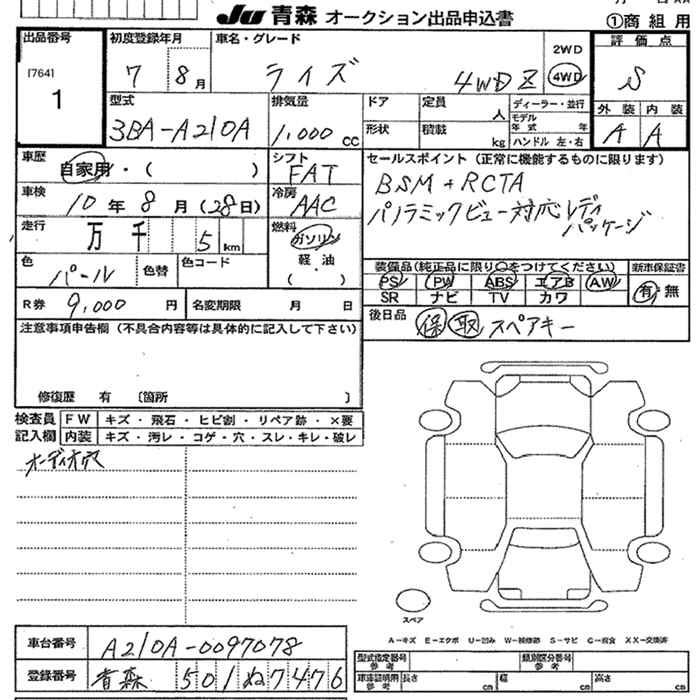 JU 青森 オークション出品申込書
①商組用
出品番号
[764]
1
初度登録年月
7 8月
車名・グレード
ライズ 4WD Z
2WD
4WD
評価点
S
外装 内装
A A
型式
3BA-A210A
排気量
1,000 cc
ドア
形状
定員 人
積載 kg
ディーラー・並行
モデル年式 年式
ハンドル 左・右
車歴
自家用・( )
シフト
FAT
セールスポイント(正常に機能するものに限ります)
BSM+RCTA
パノラミックビュー対応レディパッケージ
車検
10年8月(28日)
冷房
AAC
走行
万 千 5 km
燃料
ガソリン
軽・油
( )
色
パール
色替
色コード
装備品(純正品に限り○をつけてください)
PS PW ABS エアB AW
SR ナビ TV カワ
新車保証書
有・無
R券 9,000 円
名変期限 月 日
後日品 保 取 スペアキー
注意事項申告欄(不具合内容等は具体的に記入して下さい)
修復歴 有 〔箇所 〕
検査員記入欄
FW キズ・飛石・ヒビ割・リペア跡・×要
内装 キズ・汚レ・コゲ・穴・スレ・キレ・破レ
オーディオ穴
スペア
A-キズ E-エクボ U-凹み W-補修跡 S-サビ C-腐食 XX-交換済
車台番号 A210A-0097078
登録番号 青森 501 ぬ 7476
型式指定番号 参考
類別区分番号 参考
車庫証明用 参考
長さ cm
幅 cm
高さ cm